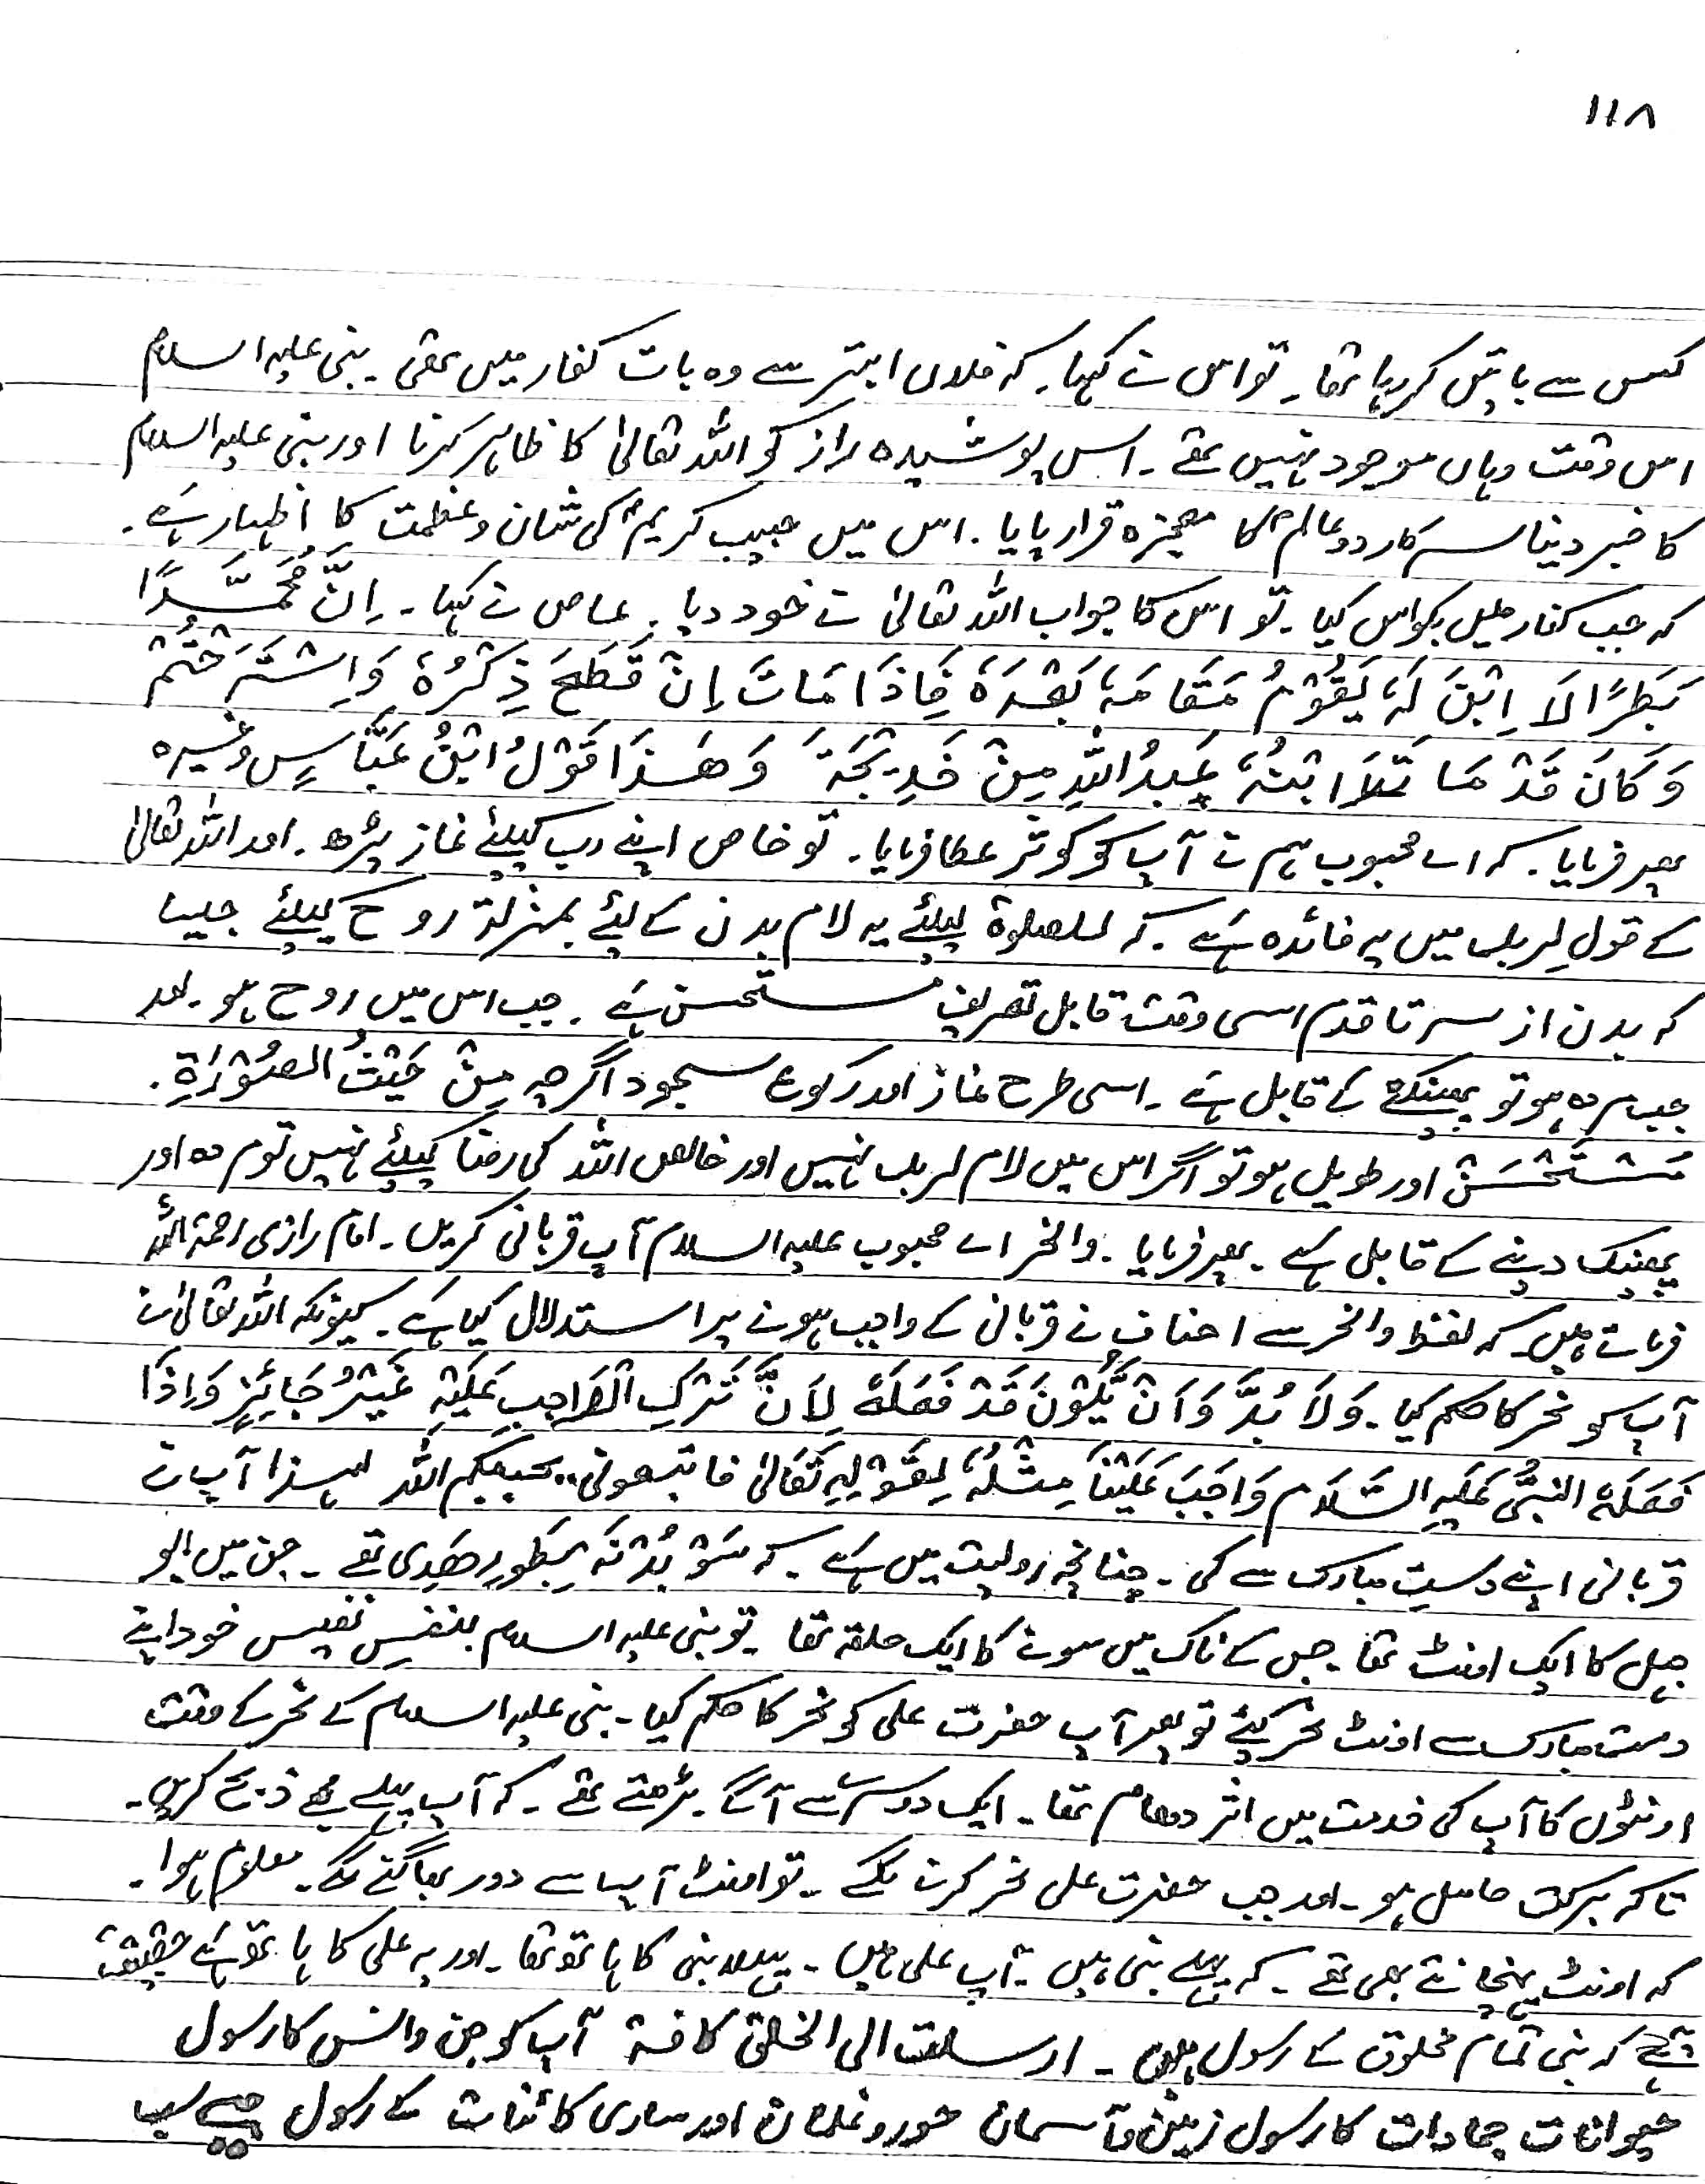 ١١٨
کس سے باتیں کر رہا تھا۔ تو اس نے کہا۔ کہ فلاں ابتر سے وہ بات کفار میں تھی۔ نبی علیہ السلام
اس وقت وہاں موجود نہیں تھے۔ اس پوشیدہ راز کو اللہ تعالیٰ کا ظاہر کرنا اور نبی علیہ السلام
کا خبر دینا سرکار دو عالمؐ کا معجزہ قرار پایا۔ اس میں حبیب کریمؐ کی شان و عظمت کا اظہار ہے۔
کہ جب کفار میں بکواس کیا۔ تو اس کا جواب اللہ تعالیٰ نے خود دیا۔ عاص نے کہا۔ اِنَّ مُحَمَّدًا
بَطَرًا لَا اِبْنَ لَہٗ یَقُوْمُ مَقَامَہٗ بَعْدَہٗ فَاِذَا مَاتَ اِنْ قَطَعَ ذِکْرُہٗ وَاِسْتَرَحْتُمْ
وَکَانَ قَدْ مَاتَ ابْنُہٗ عَبْدُ اللّٰہِ مِنْ خَدِیْجَۃَ وَھٰذَا قَوْلُ ابْنُ عَبَّاسٍ وغیرہ
پھر فرمایا۔ کہ اے محبوب ہم نے آپ کو کوثر عطا فرمایا۔ تو خاص اپنے رب کیلئے نماز پڑھ۔ اور اللہ تعالیٰ
کے قول لِربک میں یہ فائدہ ہے۔ کہ للصلوۃ کیلئے یہ لام بدن کے لئے بمنزلۃ روح کیلئے جیسا
کہ بدن از سر تا قدم اسی وقت قابل تعریف مستحسن ہے۔ جب اس میں روح ہو۔ اور
جب مردہ ہو تو پھینکنے کے قابل ہے۔ اسی طرح نماز اور رکوع سجود اگرچہ مِنْ حَیْثُ الصُّوْرَۃِ۔
مُسْتَحْسَنْ اور طویل ہو تو اگر اس میں لام لربک نہیں اور خالص اللہ کی رضا کیلئے نہیں تو مردہ اور
پھینک دینے کے قابل ہے۔ پھر فرمایا۔ وانحر اے محبوب علیہ السلام آپ قربانی کریں۔ امام رازی رحمۃ اللہ
فرماتے ہیں۔ کہ لفظ وانحر سے احناف نے قربانی کے واجب ہونے پر استدلال کیا ہے۔ کیونکہ اللہ تعالیٰ نے
آپ کو نحر کا حکم کیا۔ وَلَا بُدَّ وَاَنْ یَّکُوْنَ قَدْ فَعَلَہٗ لِاَنَّ تَرْکِ الْوَاجِبِ عَلَیْہِ غَیْرُ جَائِزٍ وَاِذَا
فَعَلَہٗ النَّبِیُّ عَلَیْہِ السَّلَام وَاجَبَ عَلَیْنَا مِثْلُہٗ لِقَوْلِہٖ تَعَالٰی فاتبعونی یحببکم اللہ لہذا آپ نے
قربانی اپنے دستِ مبارک سے کی۔ چنانچہ روایت میں ہے۔ کہ سَوْ بُدْنَہ بَطَورِ ھَدِی تھے۔ جن میں ابو
جہل کا ایک اونٹ تھا۔ جس کے ناک میں سونے کا ایک حلقہ تھا۔ تو نبی علیہ السلام بنفسِ نفیس خود اپنے
دست مبارک سے اونٹ نحر کیئے تو پھر آپ حضرت علی کو نحر کا حکم کیا۔ نبی علیہ السلام کے نحر کے وقت
اونٹوں کا آپ کی خدمت میں اژدھام تھا۔ ایک دوسرے سے آگے بڑھتے تھے۔ کہ آپ پہلے مجھے ذبح کریں۔
تاکہ برکت حاصل ہو۔ اور جب حضرت علی نحر کرنے لگے۔ تو اونٹ آپ سے دور بھاگنے لگے۔ معلوم ہوا۔
کہ اونٹ پہنچانتے بھی تھے۔ کہ پہلے نبی ہیں۔ آپ علی ہیں۔ پہلا نبی کا ہاتھ تھا۔ اور یہ علی کا ہاتھ ہے حقیقت
ہے کہ نبی تمام مخلوق کے رسول ہیں۔ ارسلت الی الخلق کافۃ آپ کو جن وانس کا رسول
حیوانات جمادات کا رسول زمین و آسمان حور و غلمان اور ساری کائنات کے رسول سب